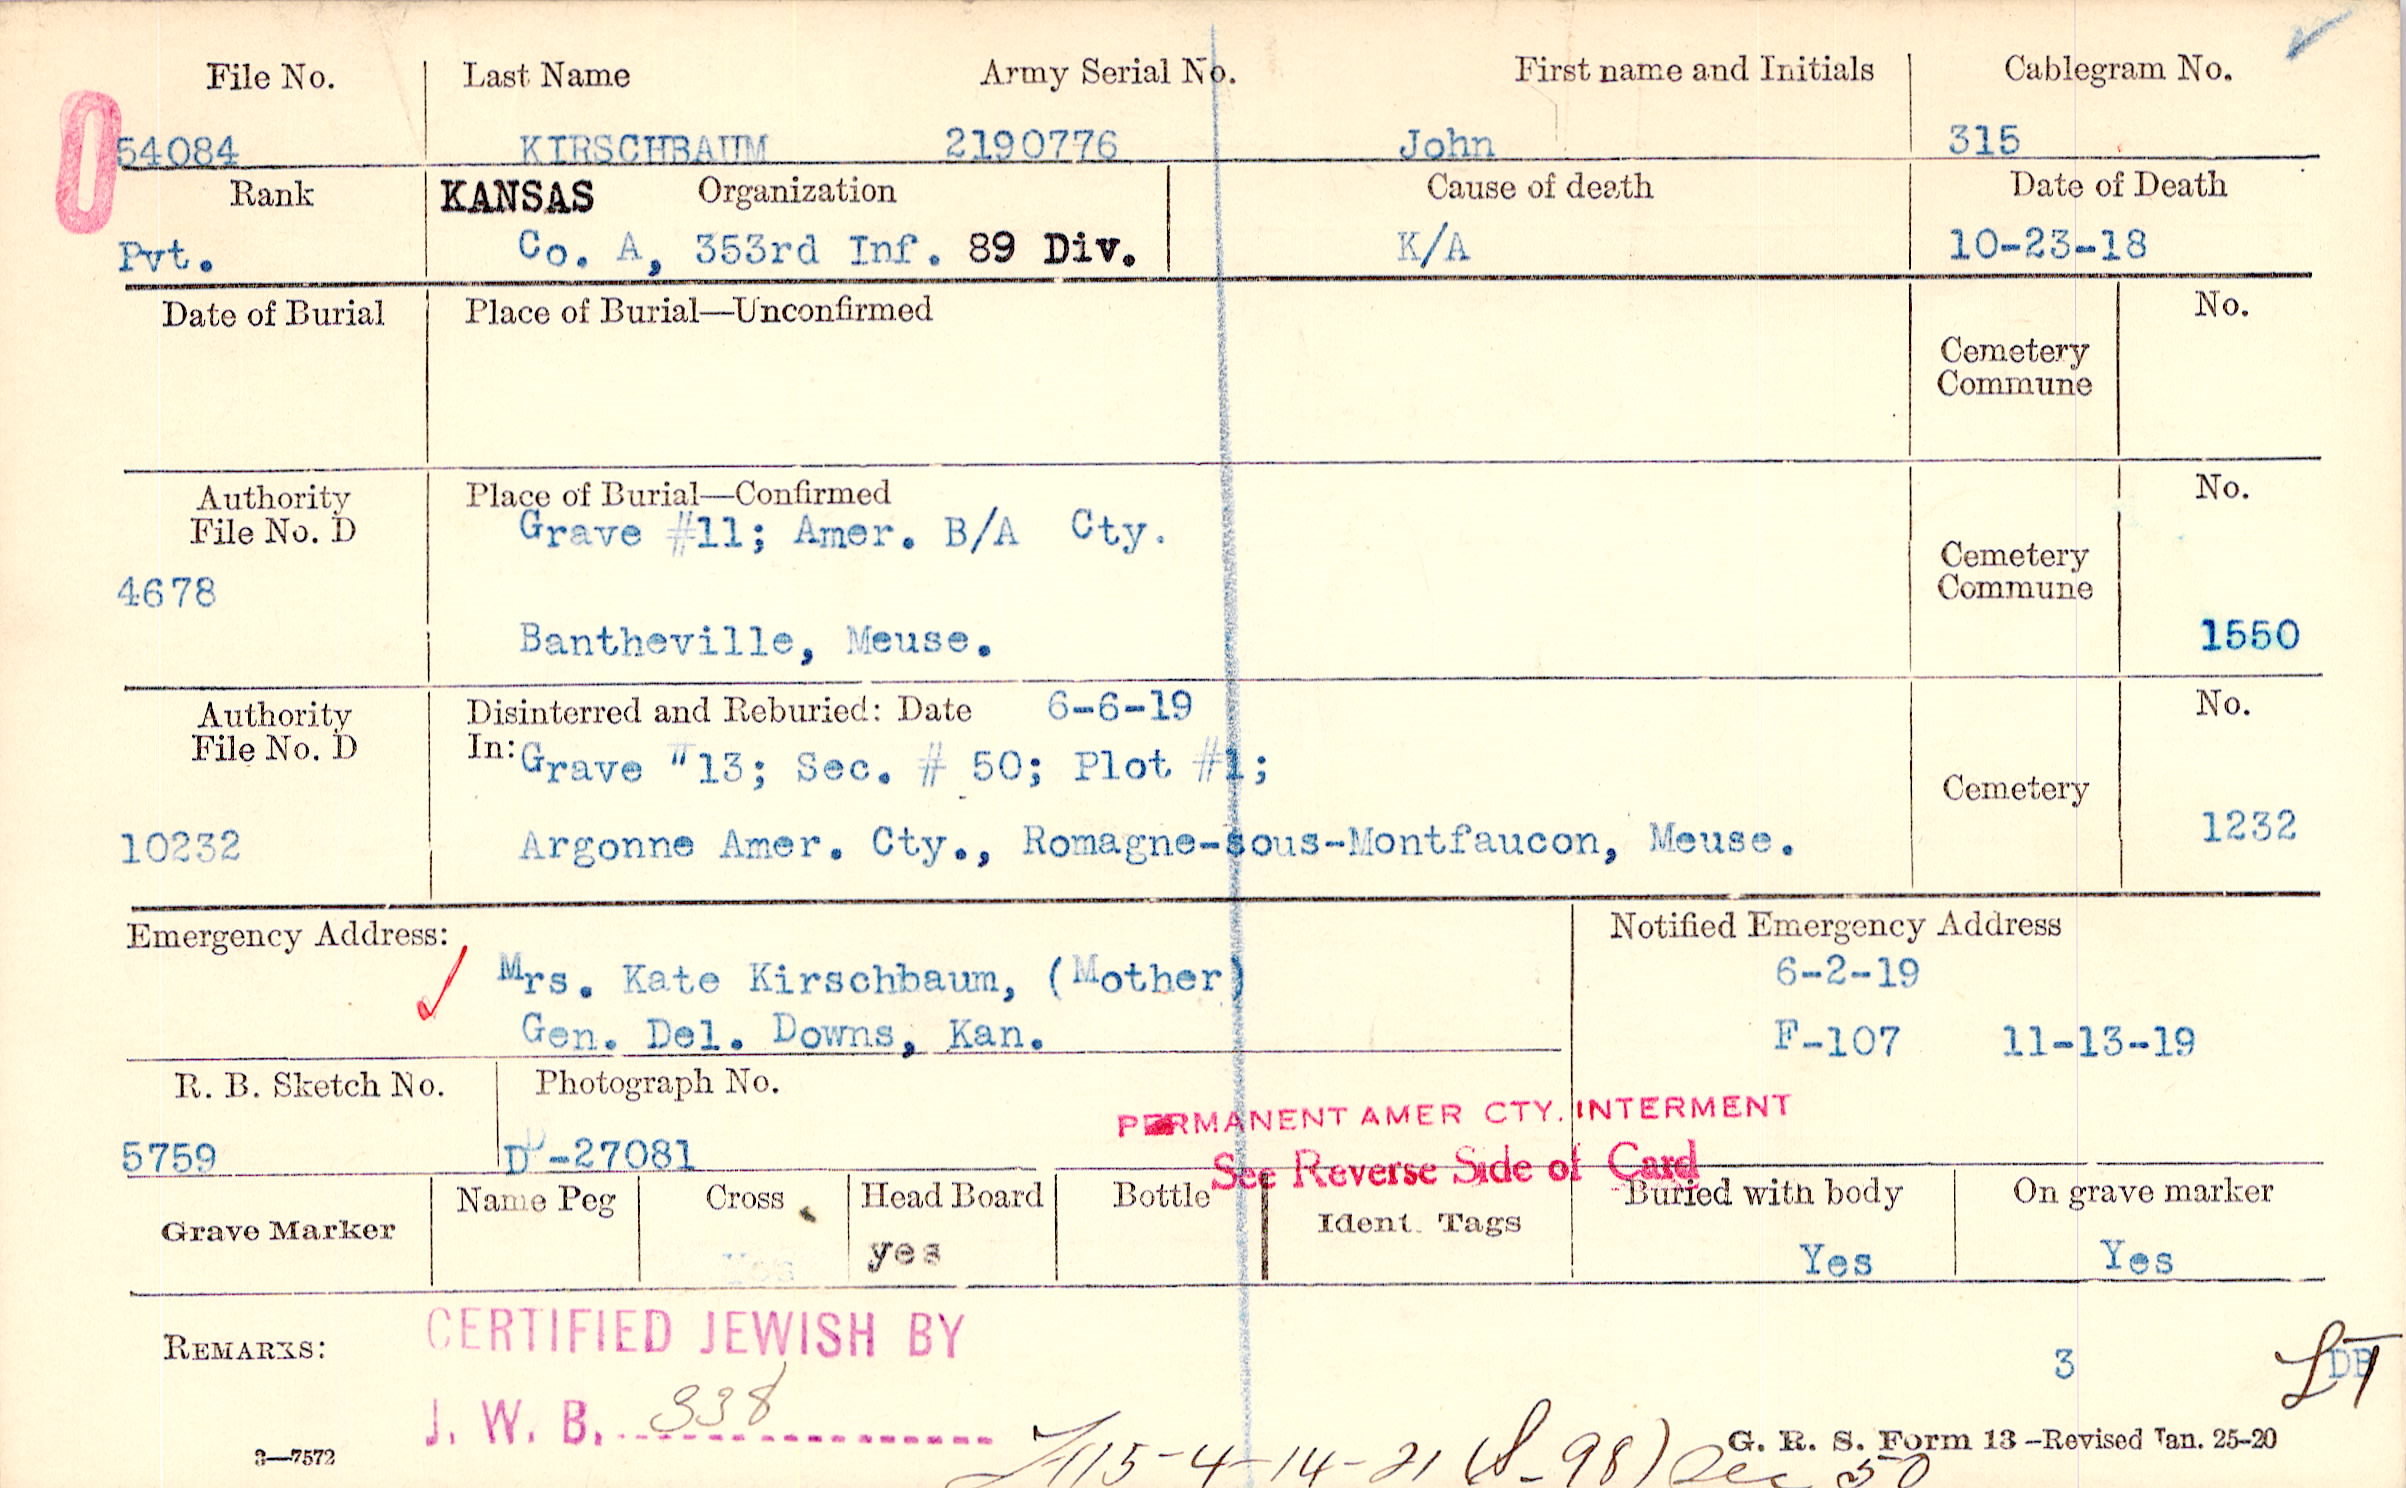 File No. Last Name Army Serial No. First name and Initials Cablegram No.
54084 KIRSCHBAUM 2190776 John 315
Rank KANSAS Organization Cause of death Date of Death
Pvt. Co. A, 353rd Inf. 89 Div. K/A 10-23-18
Date of Burial Place of Burial—Unconfirmed No.
Cemetery
Commune
Authority Place of Burial—Confirmed No.
File No. D Grave #11; Amer. B/A Cty.
Cemetery
4678 Commune
Bantheville, Meuse. 1550
Authority Disinterred and Reburied: Date 6-6-19 No.
File No. D In: Grave "13; Sec. # 50; Plot #1;
Cemetery
10232 Argonne Amer. Cty., Romagne-sous-Montfaucon, Meuse. 1232
Emergency Address: Notified Emergency Address
Mrs. Kate Kirschbaum, (Mother) 6-2-19
Gen. Del. Downs, Kan. F-107 11-13-19
R. B. Sketch No. Photograph No.
PERMANENT AMER CTY. INTERMENT
5759 D-27081 See Reverse Side of Card
Grave Marker Name Peg Cross Head Board Bottle Ident. Tags Buried with body On grave marker
Yes yes Yes Yes
REMARKS: CERTIFIED JEWISH BY 3 DB LT
J. W. B. 338
3—7572 G. R. S. Form 13—Revised Jan. 25-20
115-4-14-21 (S-98) Sec 50